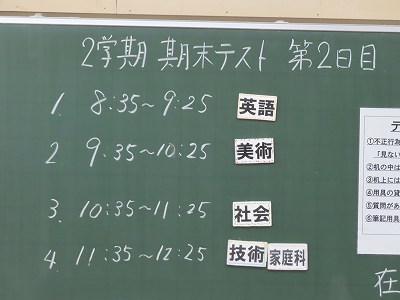 2学期 期末テスト 第2日目
1. 8:35~9:25 英語
2 9.35~10:25 美術
3. 10:35~11:25 社会
4. 11:35~12:25 技術 家庭科
テ
①不正行為
「見ない
②机の中は
③机上には
④用具の貸
⑤質問があ
⑥筆記用具
在